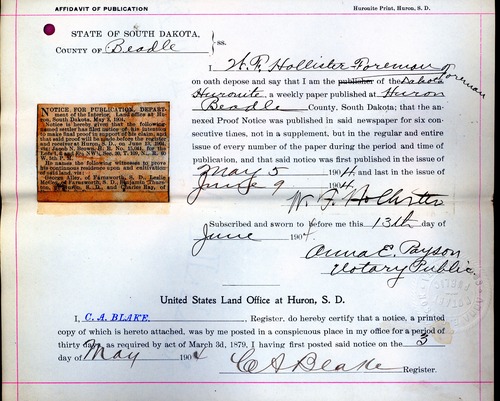 AFFIDAVIT OF PUBLICATION
Huronite Print, Huron, S. D.
STATE OF SOUTH DAKOTA,
COUNTY OF Beadle } ss.
I W. F. Hollister - Foreman
on oath depose and say that I am the publisher of the Dakota Foreman
Huronite, a weekly paper published at Huron
Beadle County, South Dakota; that the an-
nexed Proof Notice was published in said newspaper for six con-
secutive times, not in a supplement, but in the regular and entire
issue of every number of the paper during the period and time of
publication, and that said notice was first published in the issue of
May 5 1904 and last in the issue of
June 9 1904
W. F. Hollister
Subscribed and sworn to before me this 13th day of
June 1904
Anna E. Payson
Notary Public
NOTICE FOR PUBLICATION, DEPART-
ment of the Interior, Land office at Hu-
ron, South Dakota, May 2, 1904.
Notice is hereby given that the following
named settler has filed notice of his intention
to make final proof in support of his claim, and
that said proof will be made before the register
and receiver at Huron, S. D., on June 13, 1904,
following witnesses to prove
his continuous residence upon and cultivation
of said land, viz:
George Alley, of Farnsworth, S. D., Leslie
of Farnsworth, S. D., Benjamin
S. D., and Charles Ray, of
United States Land Office at Huron, S. D.
I, C. A. BLAKE, Register, do hereby certify that a notice, a printed
copy of which is hereto attached, was by me posted in a conspicuous place in my office for a period of
thirty days as required by act of March 3d, 1879, I having first posted said notice on the 3
day of May 1904
C A Blake Register.